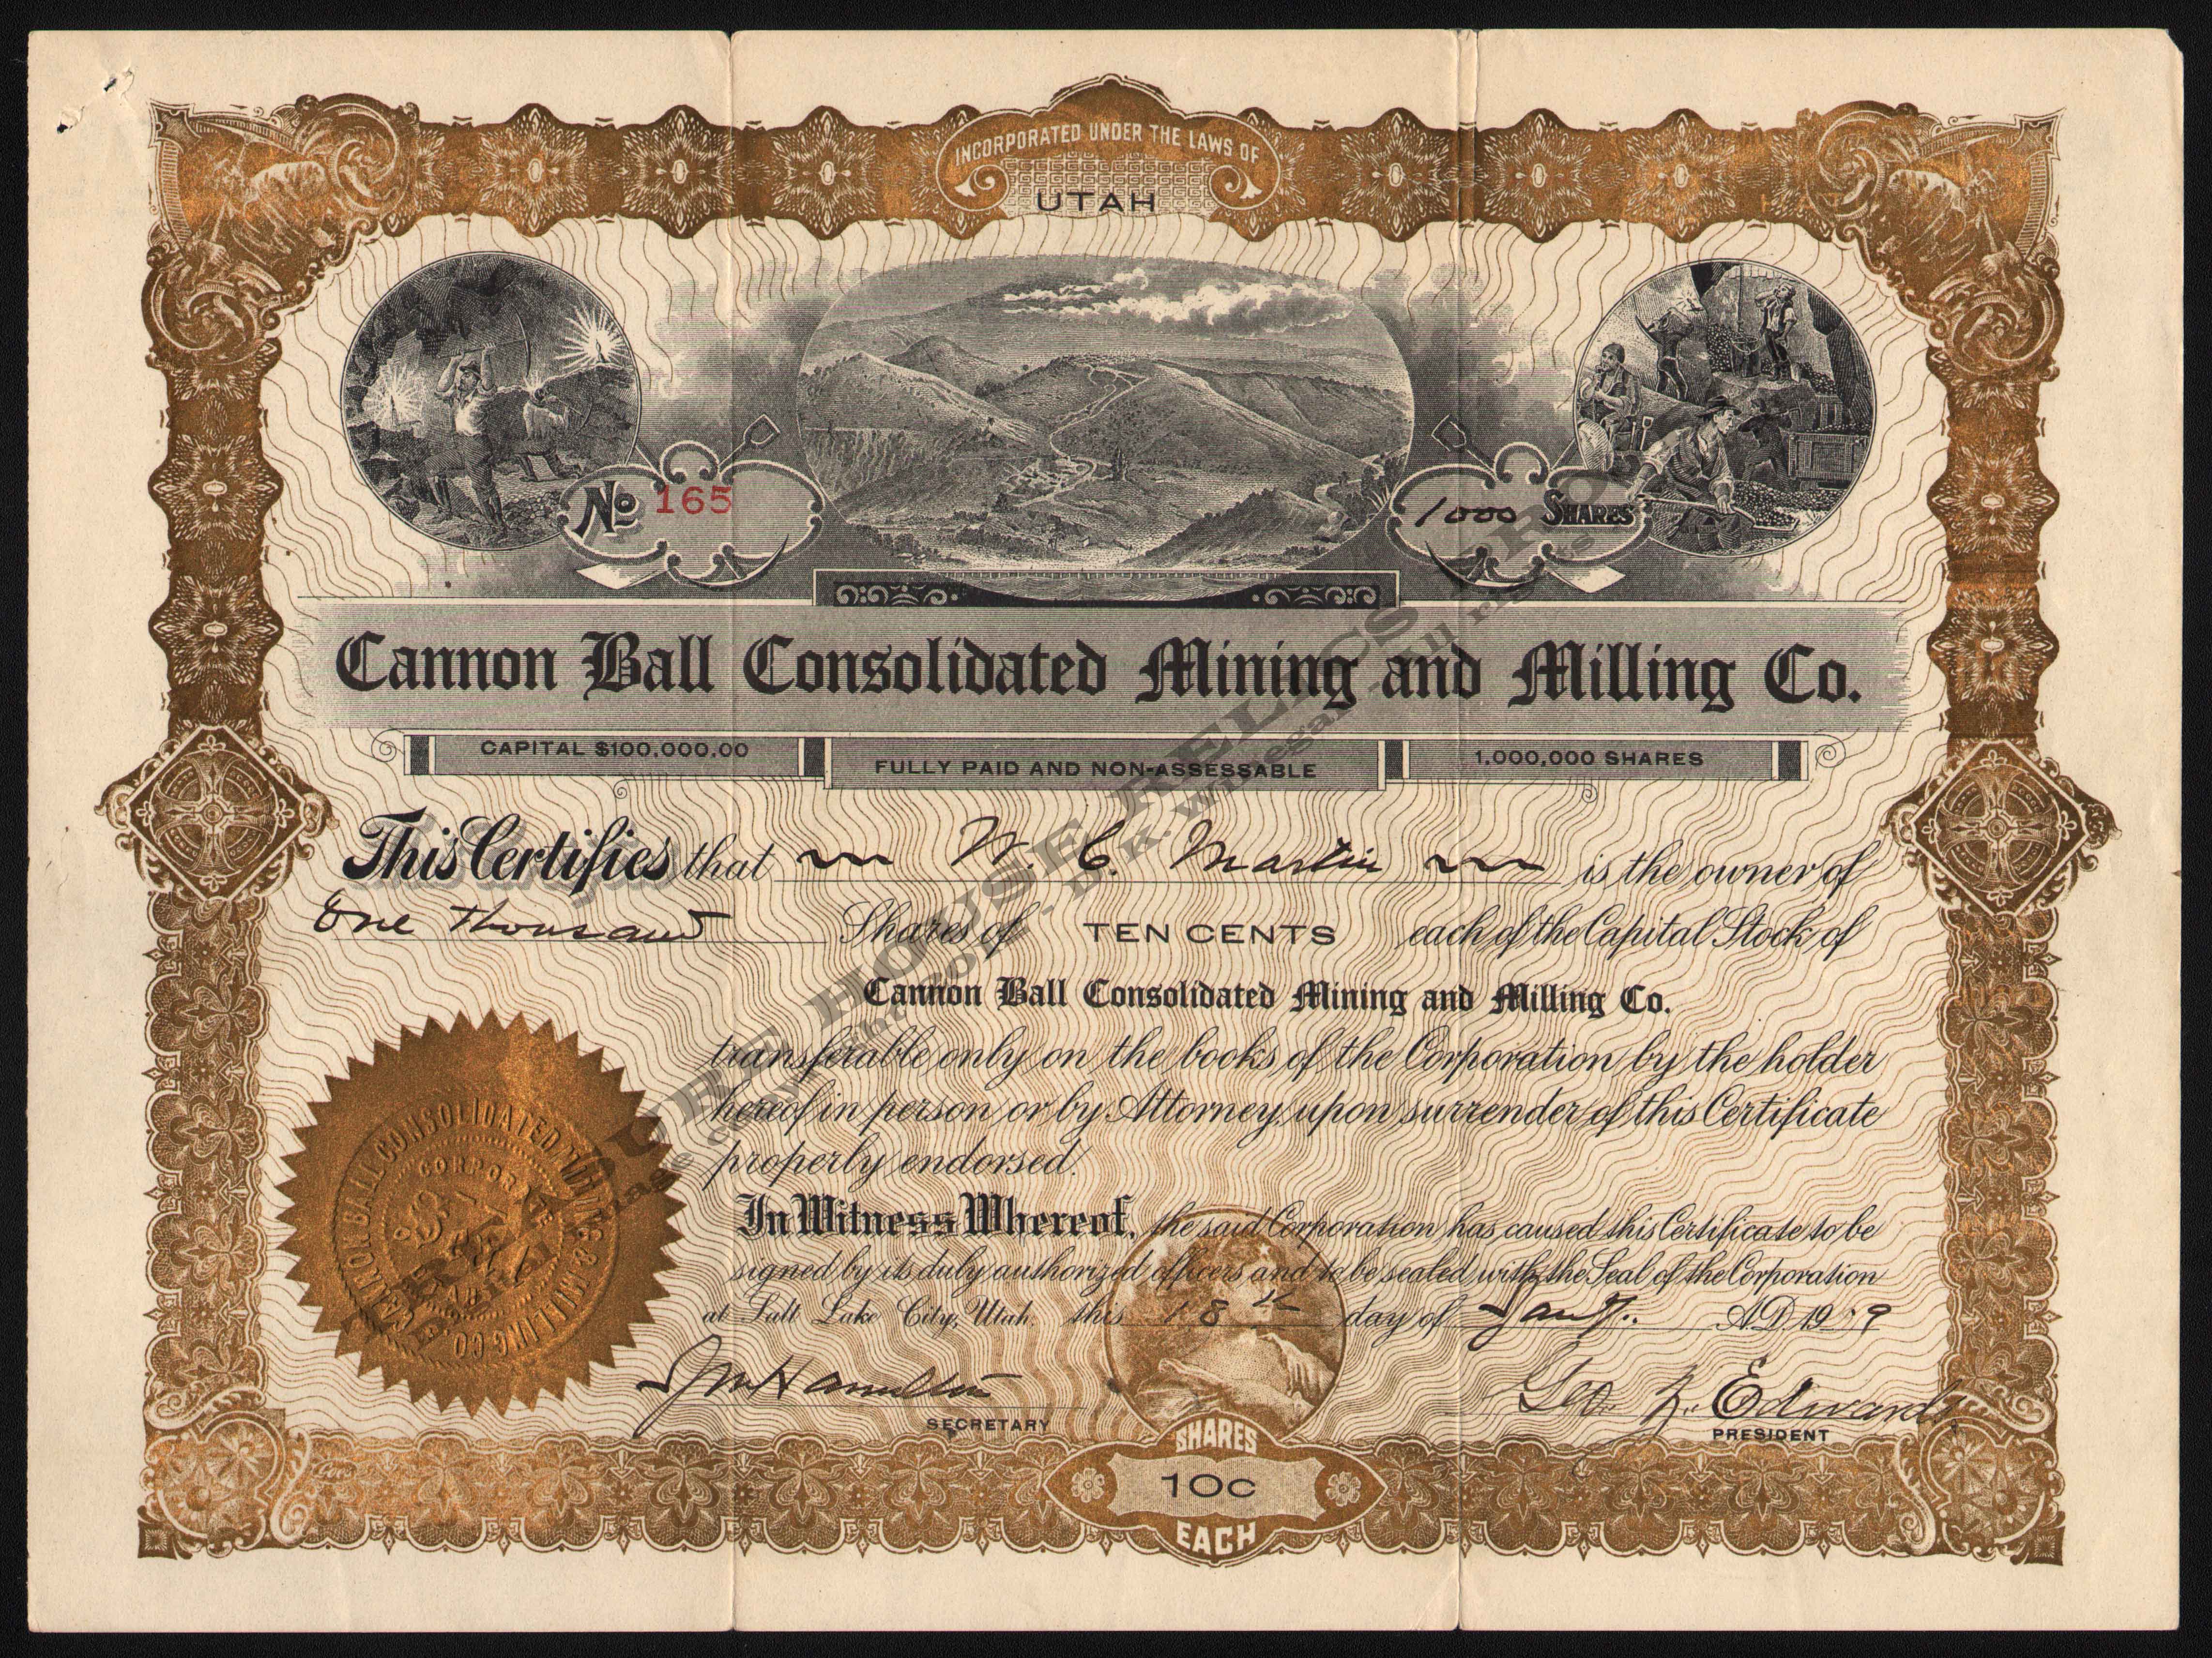 INCORPORATED UNDER THE LAWS OF
UTAH
No 165
1000 SHARES
Cannon Ball Consolidated Mining and Milling Co.
CAPITAL $100,000.00
FULLY PAID AND NON-ASSESSABLE
1,000,000 SHARES
This Certifies that W. C. Martin is the owner of
One Thousand Shares of TEN CENTS each of the Capital Stock of
Cannon Ball Consolidated Mining and Milling Co.
transferable only on the books of the Corporation by the holder
hereof in person or by Attorney, upon surrender of this Certificate
properly endorsed.
In Witness Whereof, the said Corporation has caused this Certificate to be
signed by its duly authorized officers and to be sealed with the Seal of the Corporation
at Salt Lake City, Utah. this 18th day of Jany. A.D. 19 9
CANNON BALL CONSOLIDATED MINING & MILLING CO
CORPORATE
Hamilton
SECRETARY
Geo. Edwards
PRESIDENT
SHARES
10c
EACH
Goes
HOUSE RELICS